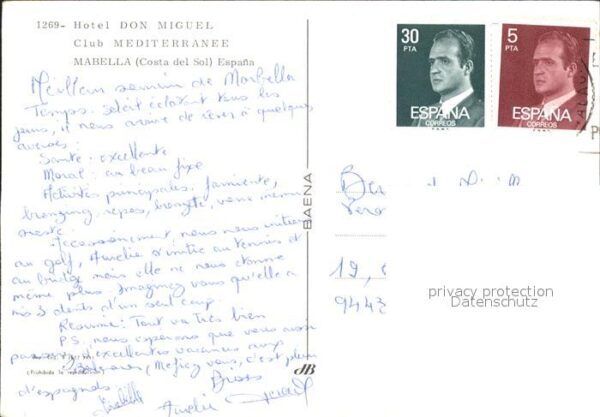 1269- Hotel DON MIGUEL
Club MEDITERRANEE
MABELLA (Costa del Sol) España
Meilleur souvenir de Marbella
Temps: soleil éclatant tous les
jours, il nous arrive de rêver à quelques
averses!
Santé: excellente
Moral: au beau fixe
Activités principales: farniente,
bronzing, repos, bronzing, voire même
sieste.
Accessoirement nous nous initions
au golf, Aurélie s'initie au tennis et
au bridge mais elle ne nous étonne
même plus. Imaginez vous qu'elle a
mis 3 dents d'un seul coup.
Résumé: Tout va très bien
P.S. nous espérons que vous aussi
passez d'excellentes vacances aux
(Méfiez vous, c'est plein
d'espagnols.
Bises
Isabelle Aurélie Gérard
(Prohibida la reproducción)
BAENA
30
PTA
ESPAÑA
CORREOS
5
PTA
ESPAÑA
CORREOS
19,
9443
privacy protection
Datenschutz